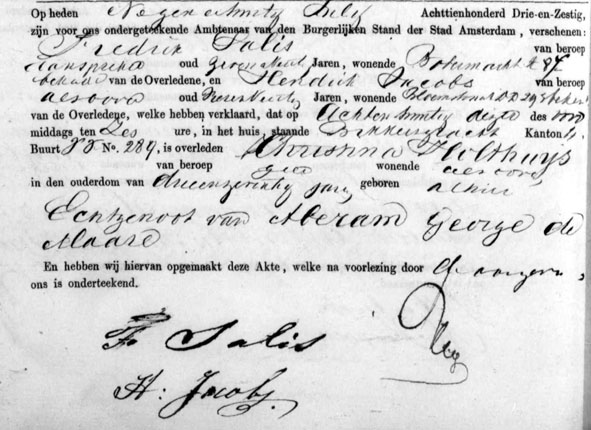 Op heden Negen twintig July Achttienhonderd Drie-en-Zestig,
zijn voor ons ondergeteekende Ambtenaar van den Burgerlijken Stand der Stad Amsterdam, verschenen:
Fredrik Salis van beroep
Aanspreker oud Jaren, wonende
bekende van de Overledene, en Hendrik Jacobs van beroep
als voren oud Jaren, wonende
van de Overledene, welke hebben verklaard, dat op Achten twintig dezer des
middags ten Zes ure, in het huis, staande Bakkersgracht Kanton
Buurt No. 289, is overleden Christina Holthuijs
van beroep geen wonende als voren
in den ouderdom van drieenzeventig jaren, geboren alhier
Echtgenoot van Abram George de
Maare
En hebben wij hiervan opgemaakt deze Akte, welke na voorlezing door de aangevers
ons is onderteekend.
F. Salis
H: Jacobs